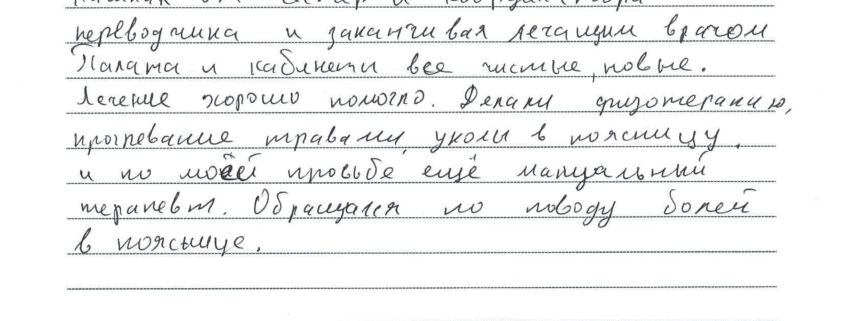 переводчика и заканчивая лечащим врачом
Палата и кабинеты все чистые, новые.
Лечение хорошо помогло. Делали физотерапию,
прогревание травами, уколы в поясницу,
и по моей просьбе ещё мануальный
терапевт. Обращался по поводу болей
в поясьнице.